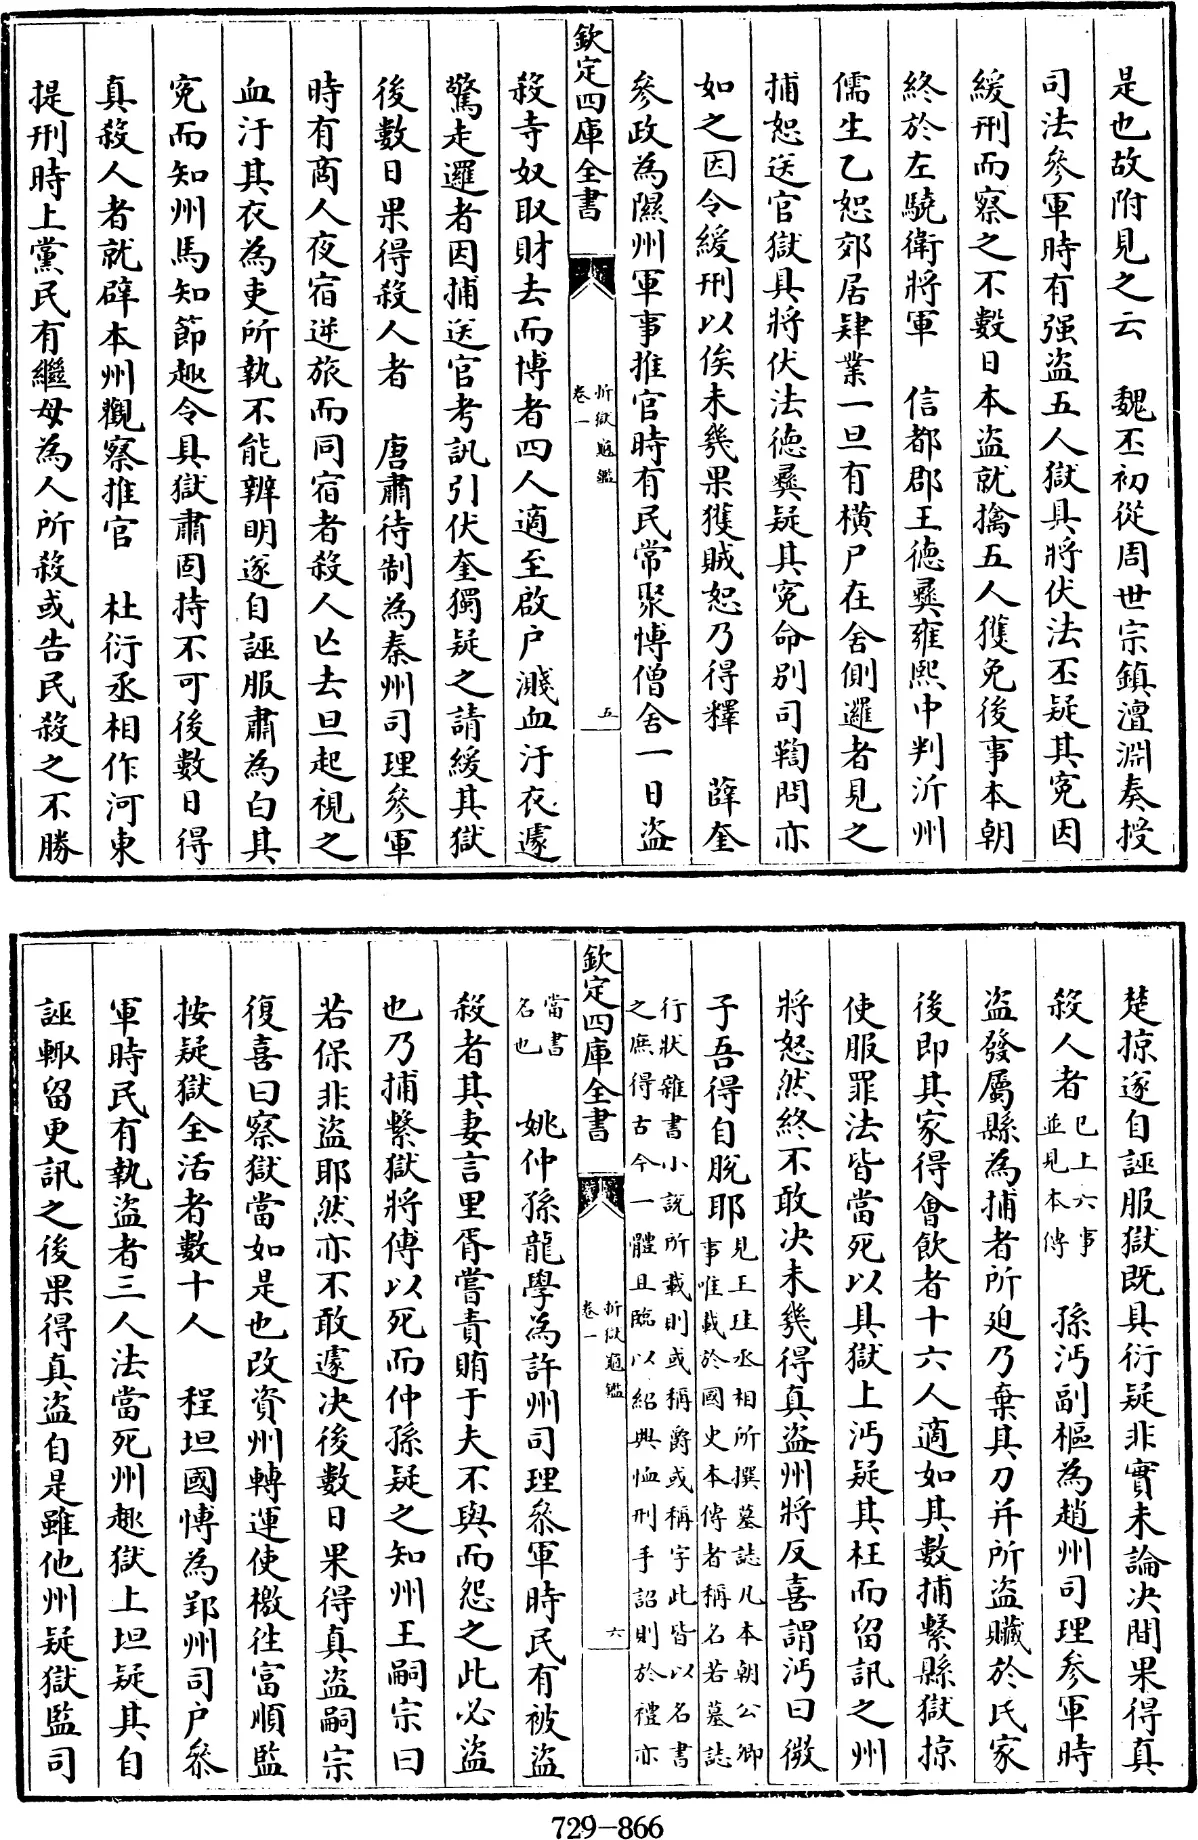 是也故附見之云　魏丕初從周世宗鎮澶淵奏授
司法參軍時有强盗五人獄具將伏法丕疑其寃因
緩刑而察之不數日本盗就擒五人獲免後事本朝
終於左驍衛將軍　信都郡王德彞雍熙中判沂州
儒生乙恕郊居肄業一旦有横尸在舍側邏者見之
捕恕送官獄具將伏法德彞疑其寃命别司鞫問亦
如之因令緩刑以俟未幾果獲賊恕乃得釋　薛奎
參政為隰州軍事推官時有民常聚博僧舍一日盗
欽定四庫全書
折獄龜鑑
卷一
五
殺寺奴取財去而博者四人適至啟户濺血汙衣遽
驚走邏者因捕送官考訊引伏奎獨疑之請緩其獄
後數日果得殺人者　唐肅待制為秦州司理參軍
時有商人夜宿逆旅而同宿者殺人亡去旦起視之
血汙其衣為吏所執不能辨明遂自誣服肅為白其
寃而知州馬知節趣令具獄肅固持不可後數日得
真殺人者就辟本州觀察推官　杜衍丞相作河東
提刑時上黨民有繼母為人所殺或告民殺之不勝
楚掠遂自誣服獄既具衍疑非實未論决間果得真
殺人者已上六事並見本傳　孫沔副樞為趙州司理參軍時
盗發屬縣為捕者所迫乃棄其刀并所盗贓於民家
後即其家得會飲者十六人適如其數捕繫縣獄掠
使服罪法皆當死以具獄上沔疑其枉而留訊之州
將怒然終不敢决未幾得真盗州將反喜謂沔曰微
子吾得自脫耶見王珪丞相所撰墓誌凡本朝公卿事唯載於國史本傳者稱名若墓誌
行狀雜書小說所載則或稱爵或稱字此皆以名書
之庶得古今一體且臨以紹興恤刑手詔則於禮亦
欽定四庫全書
折獄龜鑑
卷一
六
當書名也　姚仲孫龍學為許州司理參軍時民有被盗
殺者其妻言里胥嘗責賄于夫不與而怨之此必盗
也乃捕繫獄將傅以死而仲孫疑之知州王嗣宗曰
若保非盗耶然亦不敢遽决後數日果得真盗嗣宗
復喜曰察獄當如是也改資州轉運使檄徃富順監
按疑獄全活者數十人　程坦國博為郢州司户參
軍時民有執盗者三人法當死州趣獄上坦疑其自
誣輙留更訊之後果得真盗自是雖他州疑獄監司
729-866